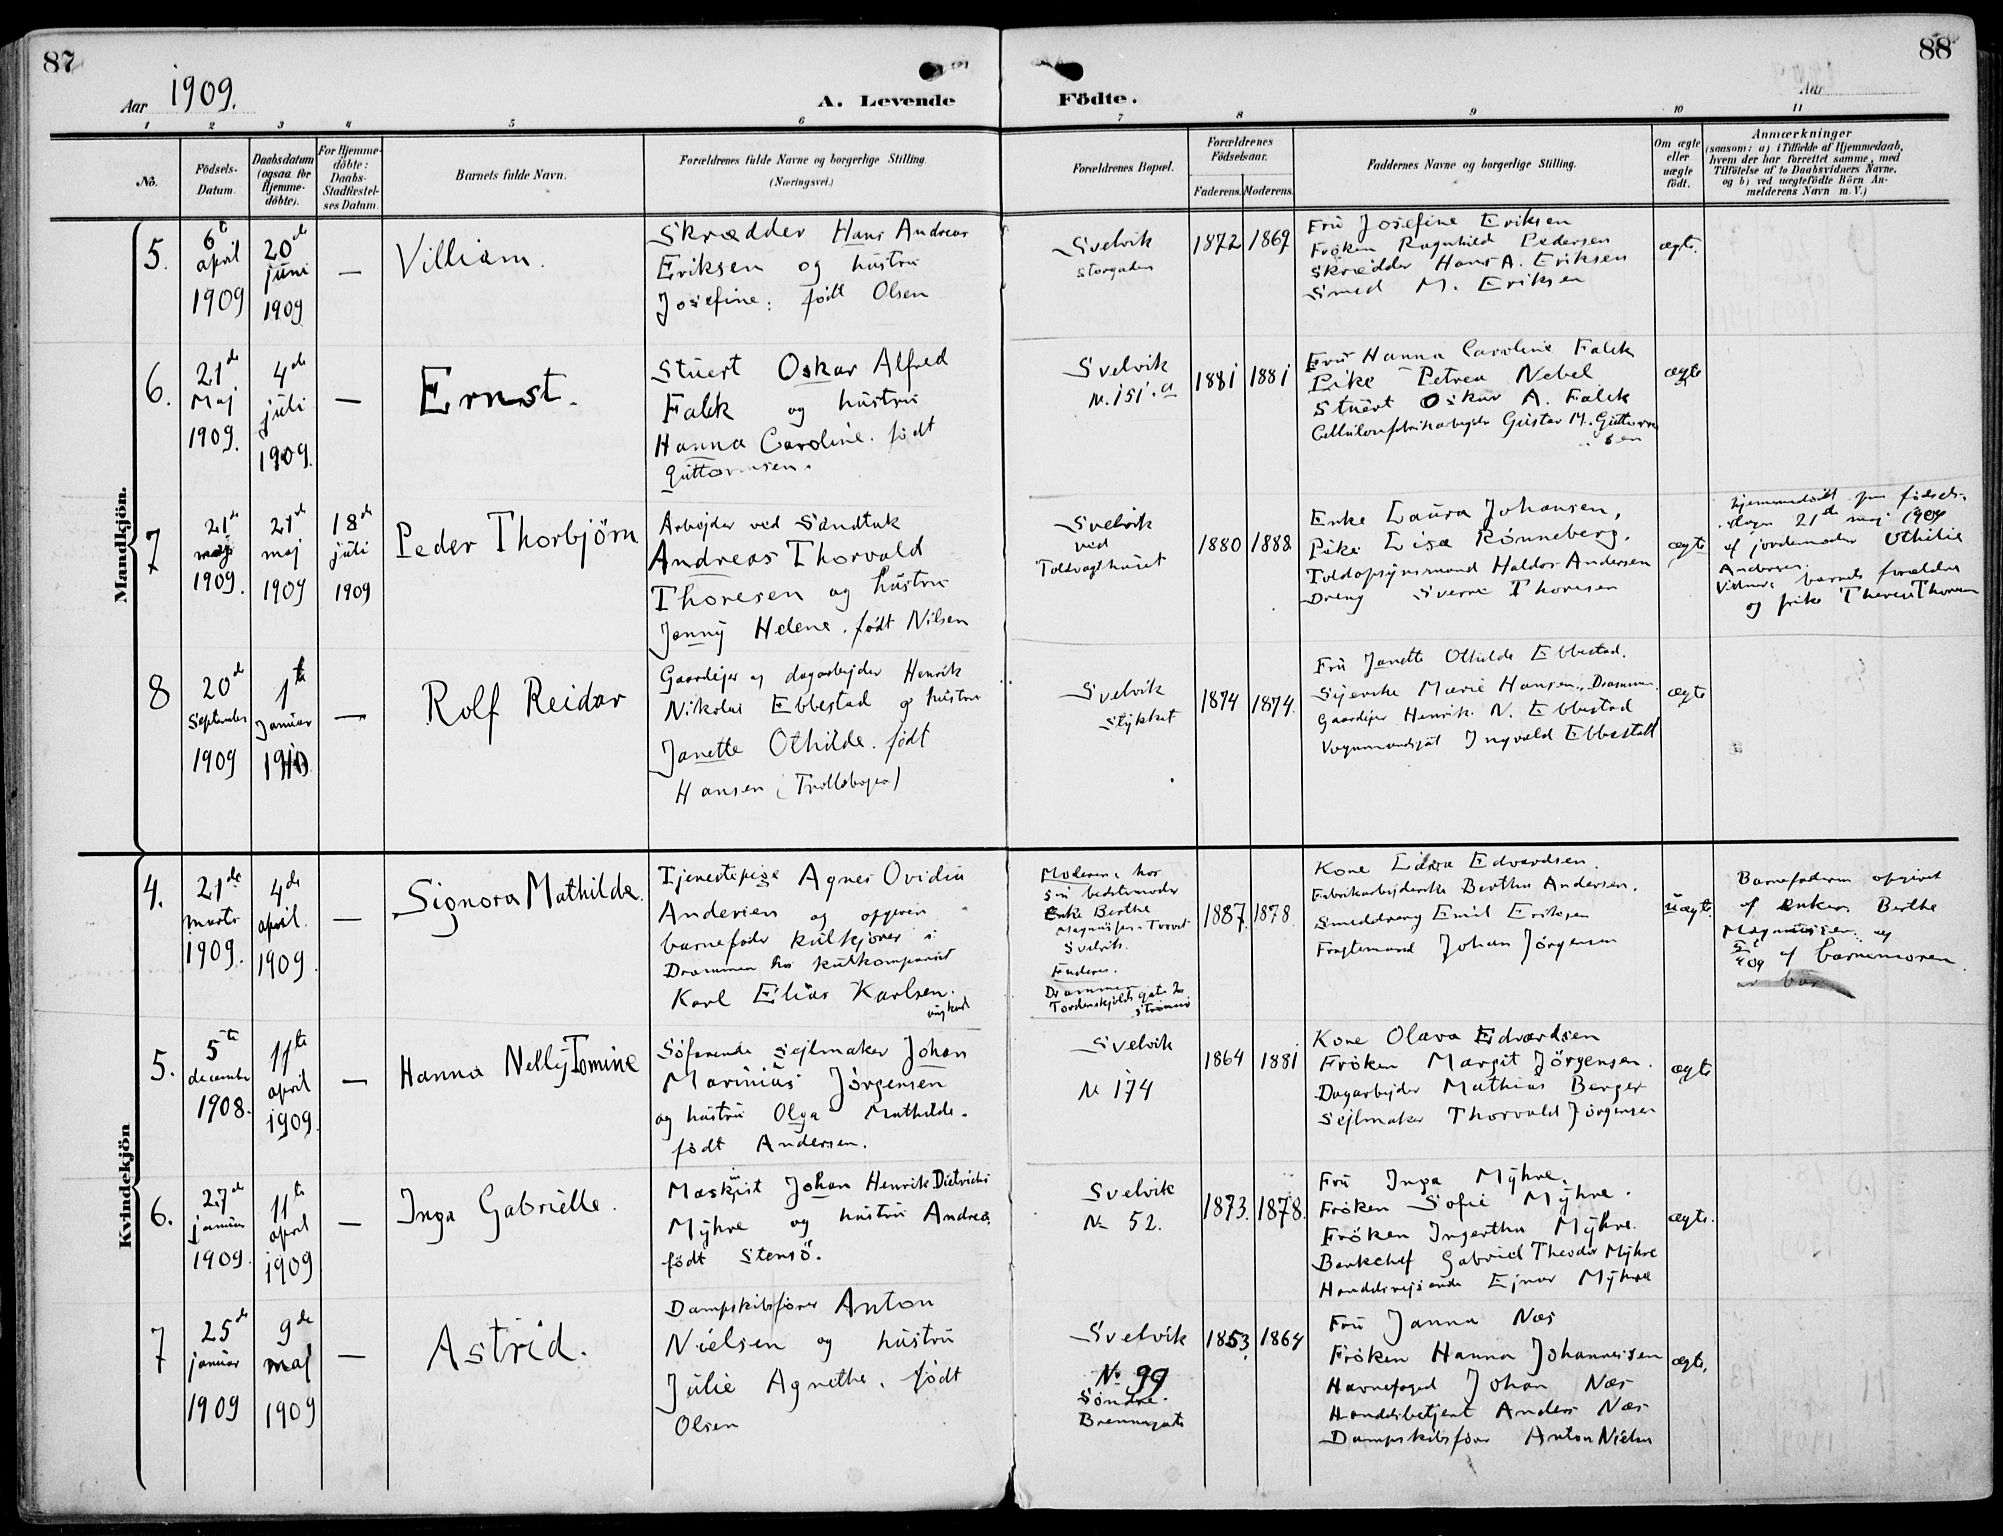 87
88
Aar 1909.
A. Levende Födte.
Aar
1 2 3 4 5 6 7 8 9 10 11
No.
Födsels-Datum.
Daabsdatum (ogsaa for Hjemme-döbte).
For Hjemme-döbte: Daabs-Stadfæstel-ses Datum.
Barnets fulde Navn.
Forældrenes fulde Navne og borgerlige Stilling.
(Næringsvei.)
Forældrenes Bopæl.
Forældrenes Födselsaar.
Faderens. Moderens.
Faddernes Navne og borgerlige Stilling.
Om ægte eller uægte födt.
Anmærkninger
(saasom: a) i Tilfælde af Hjemmedaab,
hvem der har forrettet samme, med
Tilföielse af to Daabsvidners Navne,
og b) ved uægtefödte Börn An-
melderens Navn m. V.)
Mandkjön.
5.
6te april 1909
20de juni 1909
—
Villiam.
Skrædder Hans Andreas
Eriksen og hustru
Josefine. født Olsen
Svelvik
Storgaden
1872
1869
Fru Josefine Eriksen
Frøken Ragnhild Pedersen
Skrædder Hans A. Eriksen
Smed M. Eriksen
ægte.
6.
21de Maj 1909.
4de juli 1909.
—
Ernst.
Stuert Oskar Alfred
Falck og hustru
Hanna Caroline. født
Guttormsen.
Svelvik
N. 151. a
1881
1881
Fru Hanna Caroline Falck
Pike Petrea Nebel
Stuert Oskar A. Falck
Cellulosefabrikarbejder Gustav M. Guttorm
sen
ægte
7
21de maj 1909.
21de maj 1909
18de juli 1909
Peder Thorbjörn
Arbejder ved Sandtak
Andreas Thorvald
Thoresen og hustru
Jenny Helene. født Nilsen
Svelvik
ved
Toldvagthuset
1880
1888
Enke Laura Johansen,
Pike Lisa Rønneberg.
Toldopsynsmand Haldor Andersen
Dreng Sverre Thoresen
ægte
hjemmedøbt paa fødsels-
dagen 21de maj 1909
af jordemoder Othilie
Andersen.
Vidner: barnets forældre
og pike Therese Thoresen
8
20de September 1909
1te Januar 1910
—
Rolf Reidar
Gaardejer og dagarbejder Henrik
Nikolai Ebbestad og hustru
Janette Othilde. født
Hansen (Trolldbogen)
Svelvik
Stykket
1874
1874.
Fru Janette Othilde Ebbestad.
Sijerske Marie Hansen, Drammen.
Gaardejer Henrik N. Ebbestad
Vognmandsgut Ingvald Ebbestad
ægte
Kvindekjön
4.
21de marts 1909.
4de april 1909.
—
Signora Mathilde.
Tjenestepige Agnes Ovidia
Andersen og opgiven
barnefader kulkjører i
Drammen hos kulkompaniet
Karl Elias Karlsen.
ungkarl
Moderen: hos
sin bedstemoder
Enke Berthe
Magnussen. Torvet
Svelvik.
Faderen.
Drammen
Tordenskjolds gate 2
Strømsø
1887.
1878.
Kone Edvardsen.
Fabrikarbejderske Bertha Andersen.
Smeddreng Emil Eriksen
Fragtemand Johan Jørgensen
uægte.
Barnefaderen opgivet
af enken Berthe
Magnussen. og
af barnemoren.
5.
5te december 1908.
11te april 1909.
—
Hanna Nelly Tomine
Søfarende sejlmaker Johan
Marinius Jörgensen
og hustru Olga Mathilde.
født Andersen.
Svelvik
N 174
1864
1881
Kone Olava Edvardsen
Frøken Margit Jörgensen.
Dagarbejder Mathias Berger
Sejlmaker Thorvald Jörgensen
ægte
6.
27de januar 1909.
11te april 1909
—
Inga Gabrielle.
Maskinist Johan Henrik Dietrichs
Myhre og hustru Andrea.
født Stensö.
Svelvik
No 52.
1873.
1878.
Fru Inga Myhre.
Frøken Sofie Myhre.
Frøken Ingertha Myhre.
Bankchef Gabriel Theodor Myhre
Handelsrejsende Ejnar Myhre
ægte.
7
25de januar 1909
9de maj 1909
—
Astrid.
Dampskibsfører Anton
Nielsen og hustru
Julie Agnethe. født
Olsen
Svelvik
No 99
Søndre.
Brennagate
1853.
1864
Fru Janna Næs
Frøken Hanna Johannessen
Havnefoged Johan Næs
Handelsbetjent Anders Næs
Dampskibsfører Anton Nielsen
ægte.